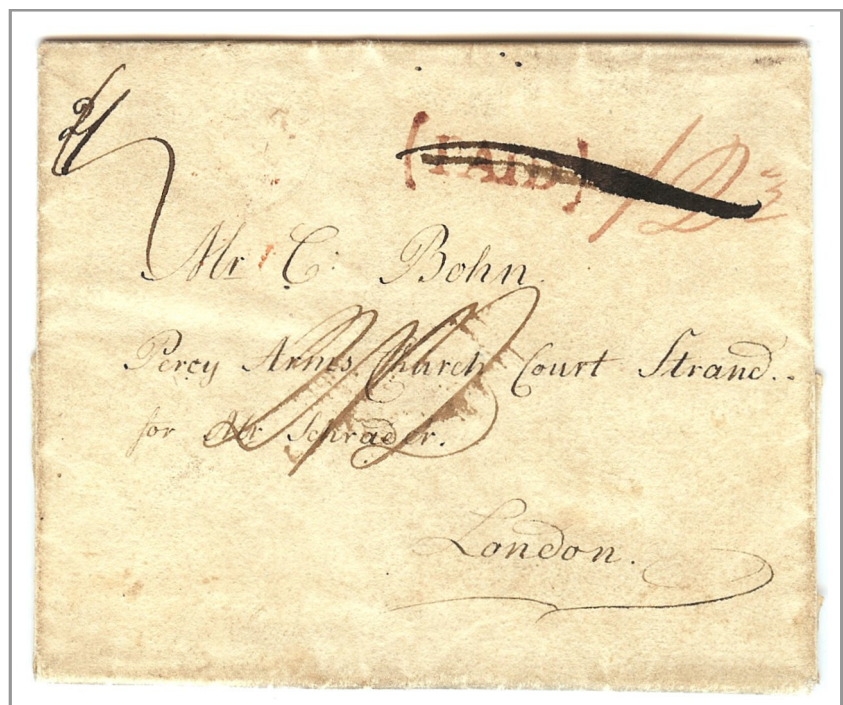 (PAID)
Mr C: Bohn
Percy Arms Church Court Strand.
for Mr Schrader.
London.